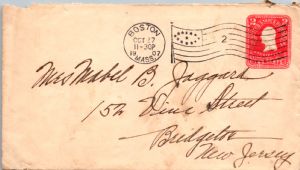 BOSTON
OCT 27
11-30P
1907
MASS.
2
2 2
Mrs Mabel B. Jaggard
152 Vine Street
Bridgeton
New Jersey